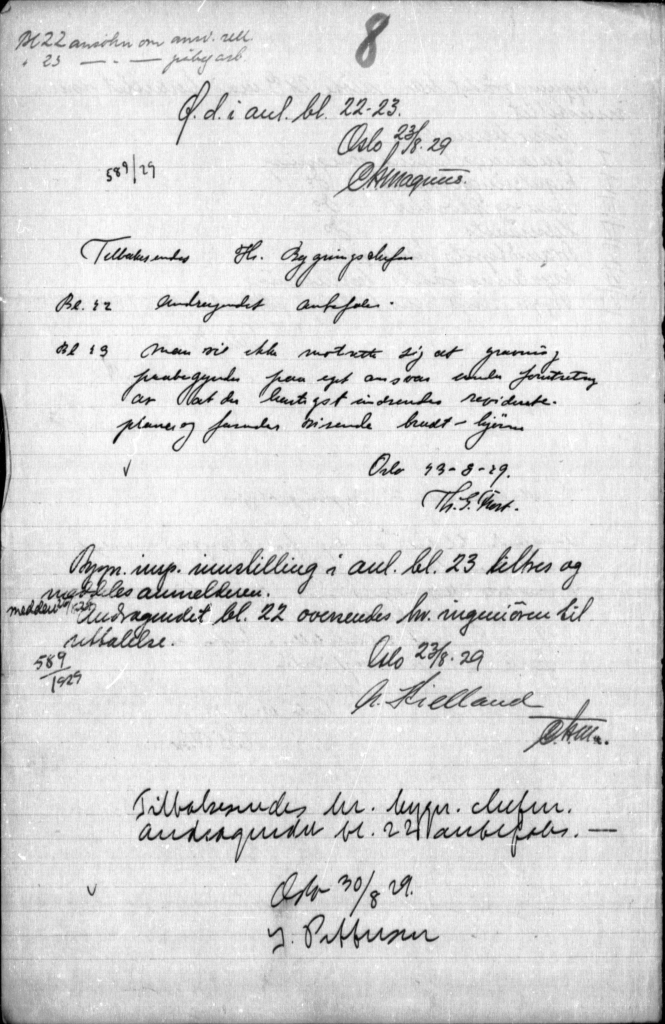 8
Bl 22 ansøkn om anv. till.
" 23 — " — påbeg arb.
P. d. i anl. bl. 22-23.
Oslo 23/8. 29
589/29
Tilbakesendes Hr. Bygningschefen
Bl. 22 Andragendet anbefales.
Bl 23 man vil ikke motsette sig at gravning
paabegyndes paa eget ansvar under forutsetng
av at der hurtigst indsendes reviderte
planer og visende
Oslo 23-8-29.
Th. S.
Bygn. insp. innstilling i anl. bl. 23 tiltres og
meddeles anmelderen.
Andragendet bl. 22 oversendes hr. ingeniøren til
uttalelse.
589
1929
Oslo 23/8. 29
A. Kielland
Tilbakesendes hr. bygn. chefen.
Andragendet bl. 22 anbefales. —
Oslo 30/8 29.
J. Pettersen